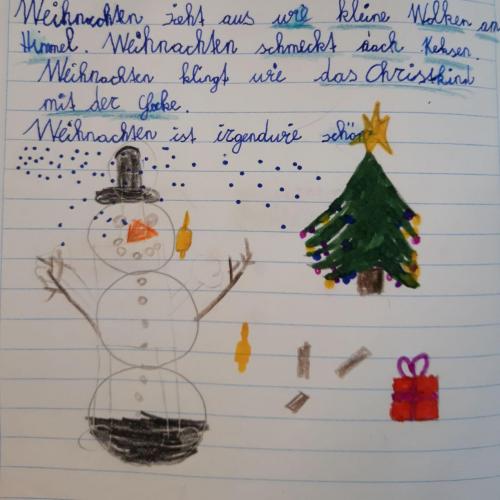 Weihnachten seht aus wie kleine Wolken am
Himmel. Weihnachten schmeckt nach Keksen.
Weihnachten klingt wie das Christkind
mit der Glocke.
Weihnachten ist irgendwie schön.